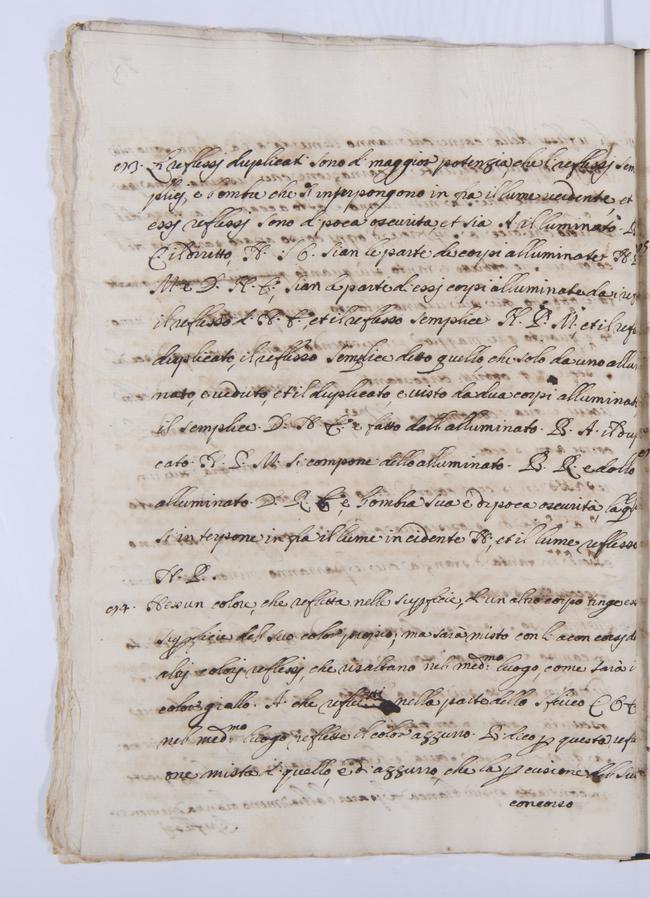 L reflessj duplicati sono d maggior potenzia, che l reflessj sem
plicj, e l'ombre che s'interpongono in fra il lume incidente, et
essj reflessj sono d poca oscurita et sia A illuminato
il diretto, sian le parte de corpi alluminate
M e D. sian le parte d'essj corpi alluminate da i refl
il reflesso d et il reflesso semplice et il refl
duplicato, il reflesso semplice detto quello, che solo da uno allu
nato, e veduto, et il duplicato e visto da dua corpi alluminat
il semplice e fatto dall alluminato B. A. il du
cato si compone dello alluminato e dallo
alluminato l'ombra sua e di poca oscurita, la q
si interpone in fra il lume incidente N, et il lume reflesso
N. P.
Nessun colore, che refletta nella superficie, d'un altro corpo tinge essa
superficie del suo color proprio, ma sarà misto con li concorsj d
altrj colorj reflessj, che risaltano nel med.mo luogo, come sarà i
color giallo. A. che reflette nella parte dello sferico
nel med.mo luogo reflette il color azzurro. B. dico per questa refle
one mista di quello, e di azzurro, che la percusione del suo
concorso